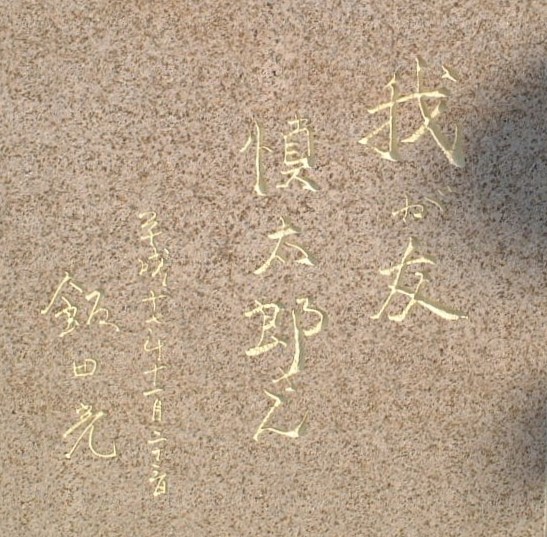 我が友
慎太郎え
平成十七年十一月二十三日
飯田亮